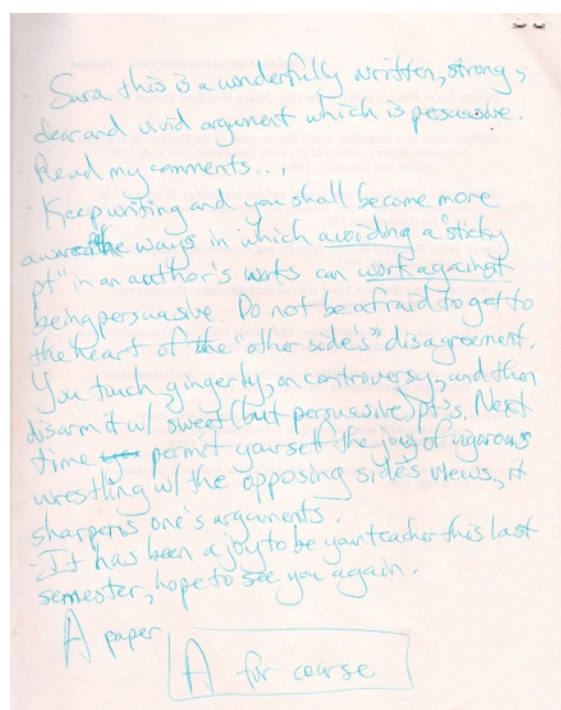 Sara this is a wonderfully written, strong,
clear and vivid argument which is persuasive.
Read my comments...
- Keep writing and you shall become more
aware the ways in which avoiding a "sticky
pt" in an author's works can work against
being persuasive. Do not be afraid to get to
the heart of the "other side's" disagreement.
You touch, gingerly, on controversy, and then
disarm it w/ sweet (but persuasive) pt's. Next
time permit yourself the joy of vigorous
wrestling w/ the opposing side's views, it
sharpens one's arguments.
- It has been a joy to be your teacher this last
semester, hope to see you again.
A paper
A for course